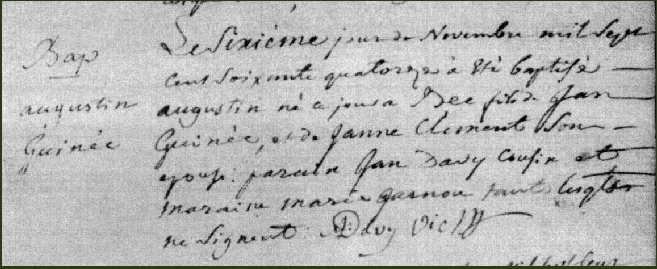 Bap
augustin
Guinée
Le Sixiéme jour de Novembre mil Sept
cent Soixante quatorze à été baptisé
augustin né ce jour a Bec fils de Jan
Guinée, et de Janne Clement Son
epouse: parain Jan Davy Cousin et
maraine marie garnou
ne Signent. Davy Vic